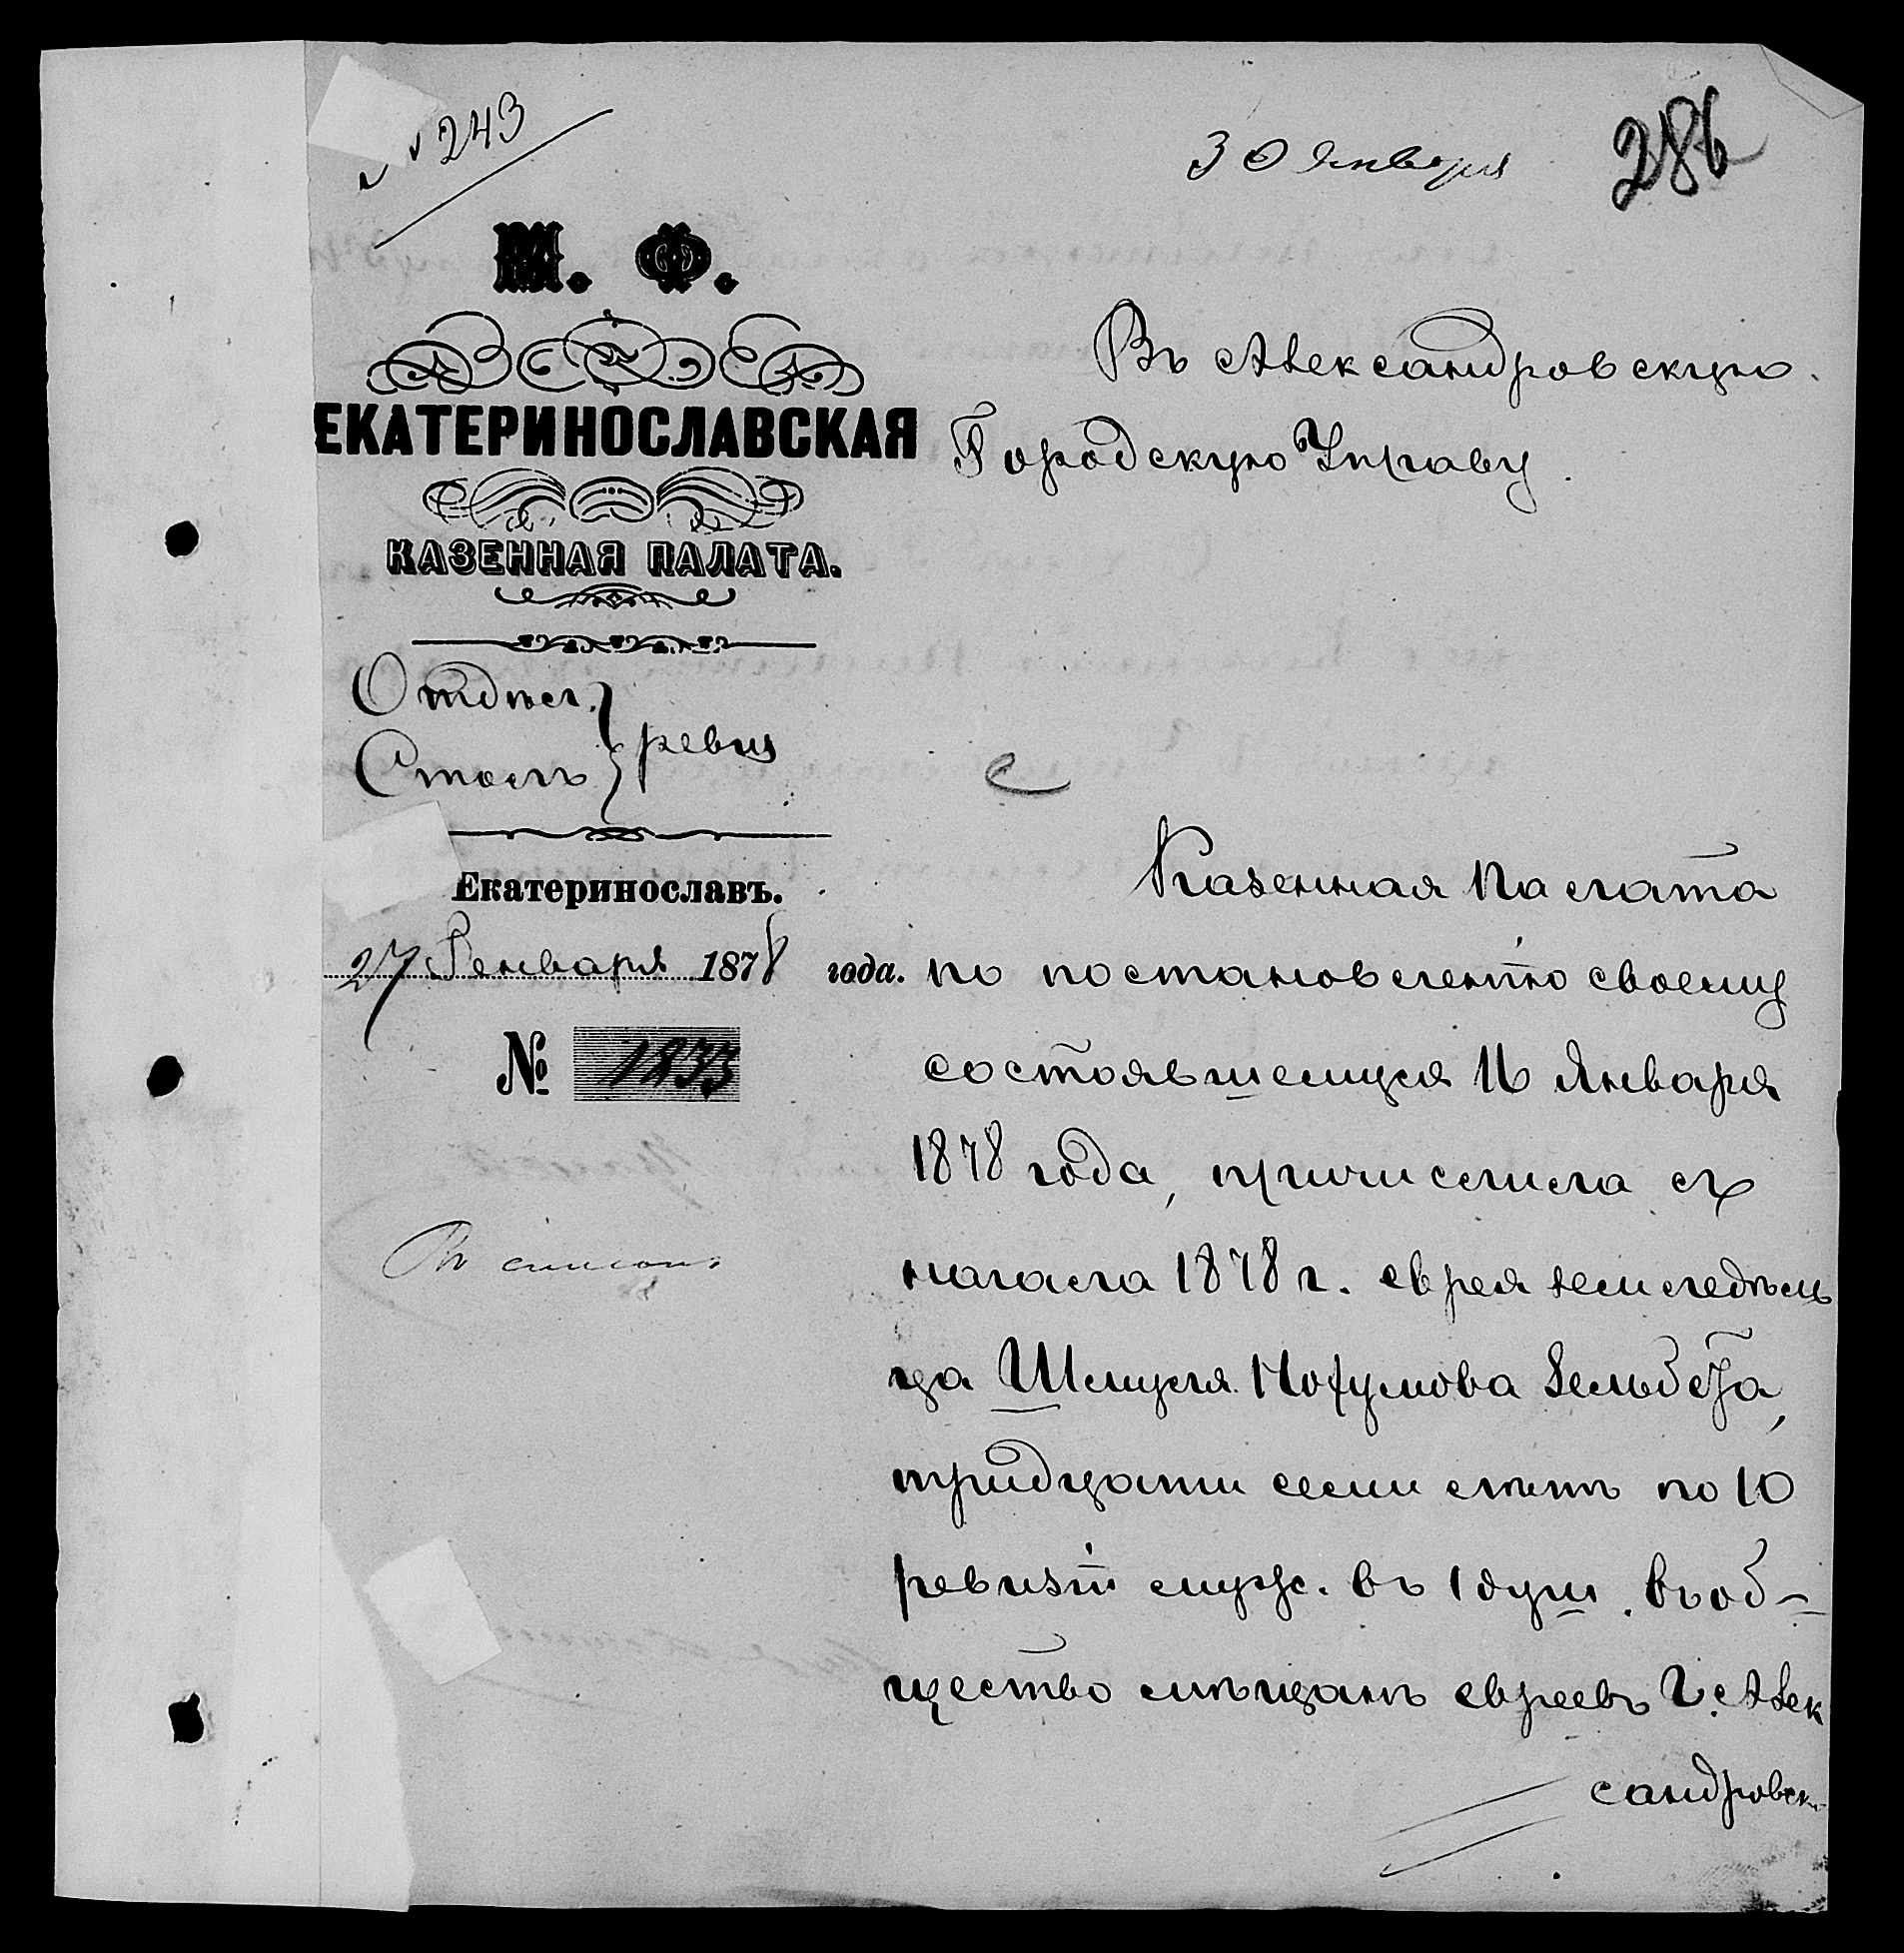 № 243
30 Января
286
М. Ф.
ЕКАТЕРИНОСЛАВСКАЯ
КАЗЕННАЯ ПАЛАТА.
Отдѣл.
Столъ
ревиз
Екатеринославъ.
27 Генваря 1878 года.
№ 1833
Въ Александровскую
Городскую Управу.
Казенная Палата
по постановленію своему
состоявшемуся 16 Января
1878 года, причислила съ
начала 1878 г. еврея земледѣль
ца Шмуля Нохумова
тридцати семи лѣтъ по 10
ревизіи муж. въ 1 душ. въ об-
щество мѣщанъ евреевъ г. Алек
сандровск